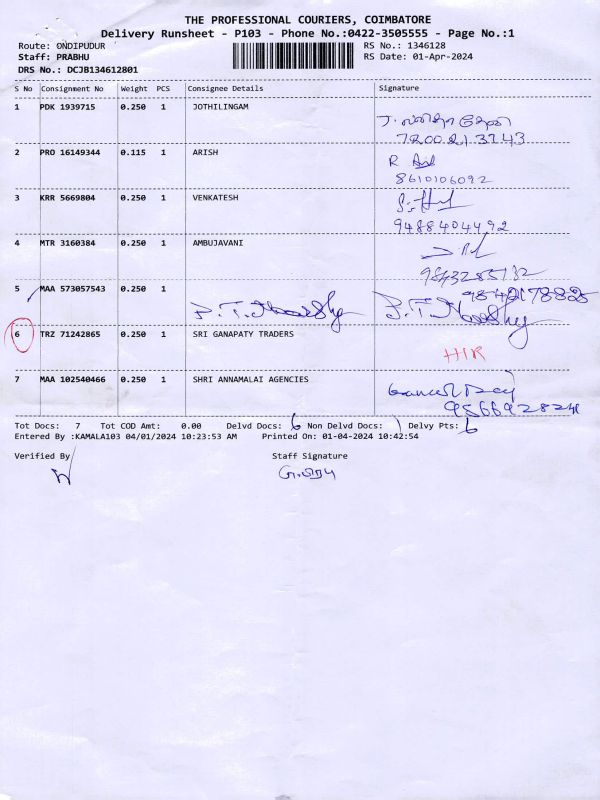 THE PROFESSIONAL COURIERS, COIMBATORE
Delivery Runsheet - P103 - Phone No.:0422-3505555 - Page No.:1
Route: ONDIPUDUR RS No.: 1346128
Staff: PRABHU RS Date: 01-Apr-2024
DRS No.: DCJB134612801
S No Consignment No Weight PCS Consignee Details Signature
1 PDK 1939715 0.250 1 JOTHILINGAM
2 PRO 16149344 0.115 1 ARISH
R
8610106092
3 KRR 5669804 0.250 1 VENKATESH
9488404492
4 MTR 3160384 0.250 1 AMBUJAVANI
9843285132
5 MAA 573057543 0.250 1
6 TRZ 71242865 0.250 1 SRI GANAPATY TRADERS
7 MAA 102540466 0.250 1 SHRI ANNAMALAI AGENCIES
Tot Docs: 7 Tot COD Amt: 0.00 Delvd Docs: 6 Non Delvd Docs: 1 Delvy Pts: 6
Entered By :KAMALA103 04/01/2024 10:23:53 AM Printed On: 01-04-2024 10:42:54
Verified By Staff Signature